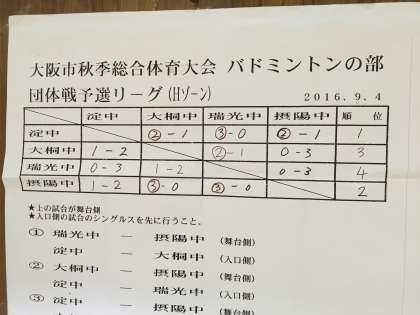 大阪市秋季総合体育大会 バドミントンの部
団体戦予選リーグ(Hゾーン) 2016.9.4
淀中 大桐中 瑞光中 摂陽中 順 位
淀中 ②-1 ③-0 ②-1 1
大桐中 1-2 ②-1 0-3 3
瑞光中 0-3 1-2 0-3 4
摂陽中 1-2 ③-0 ③-0 2
★上の試合が舞台側
★入口側の試合のシングルスを先に行うこと。
① 瑞光中 ー 摂陽中 (舞台側)
淀中 ー 大桐中 (入口側)
② 大桐中 ー 摂陽中 (舞台側)
淀中 ー 瑞光中 (入口側)
③ 淀中 ー 摂陽中 (舞台側)
大桐中 ー 瑞光中